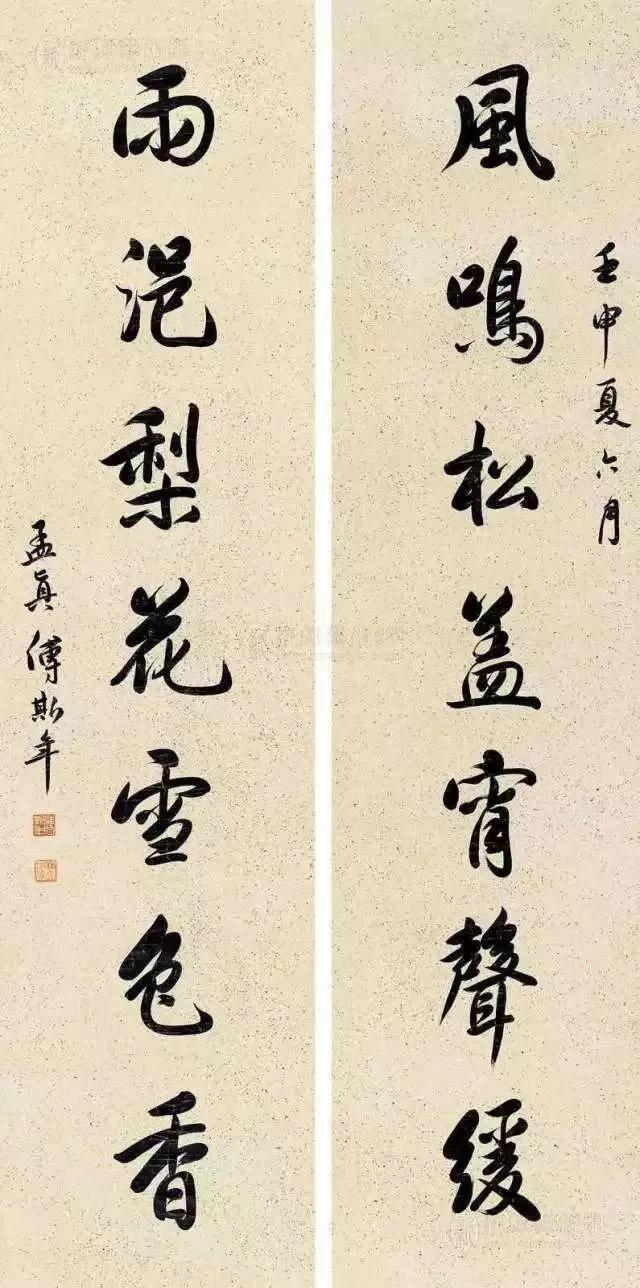 壬申夏六月
風鳴松蓋宵聲緩
雨浥梨花雪色香
孟真傅斯年